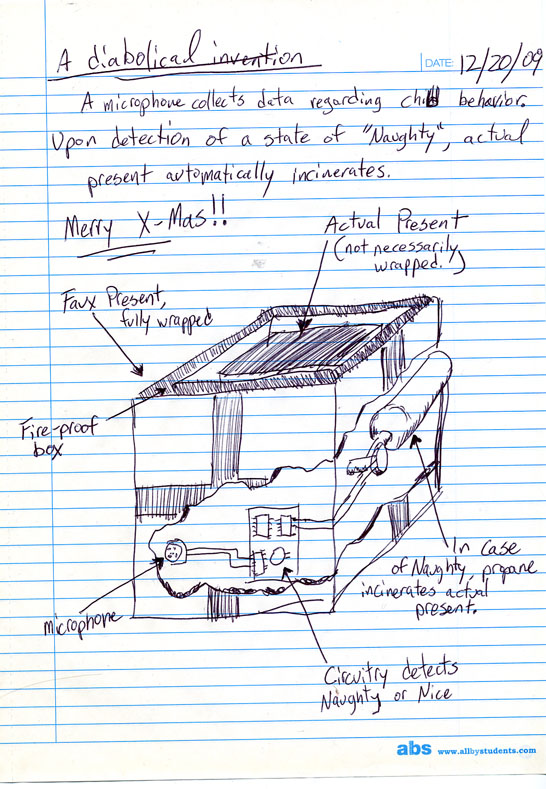 A diabolical invention
DATE: 12/20/09
A microphone collects data regarding child behavior.
Upon detection of a state of "Naughty", actual
present automatically incinerates.
Merry X-Mas!!
Actual Present
(not necessarily
wrapped.)
Faux Present,
fully wrapped
Fire-proof
box
microphone
In case
of Naughty, propane
incinerates actual
present.
Circuitry detects
Naughty or Nice
abs www.allbystudents.com